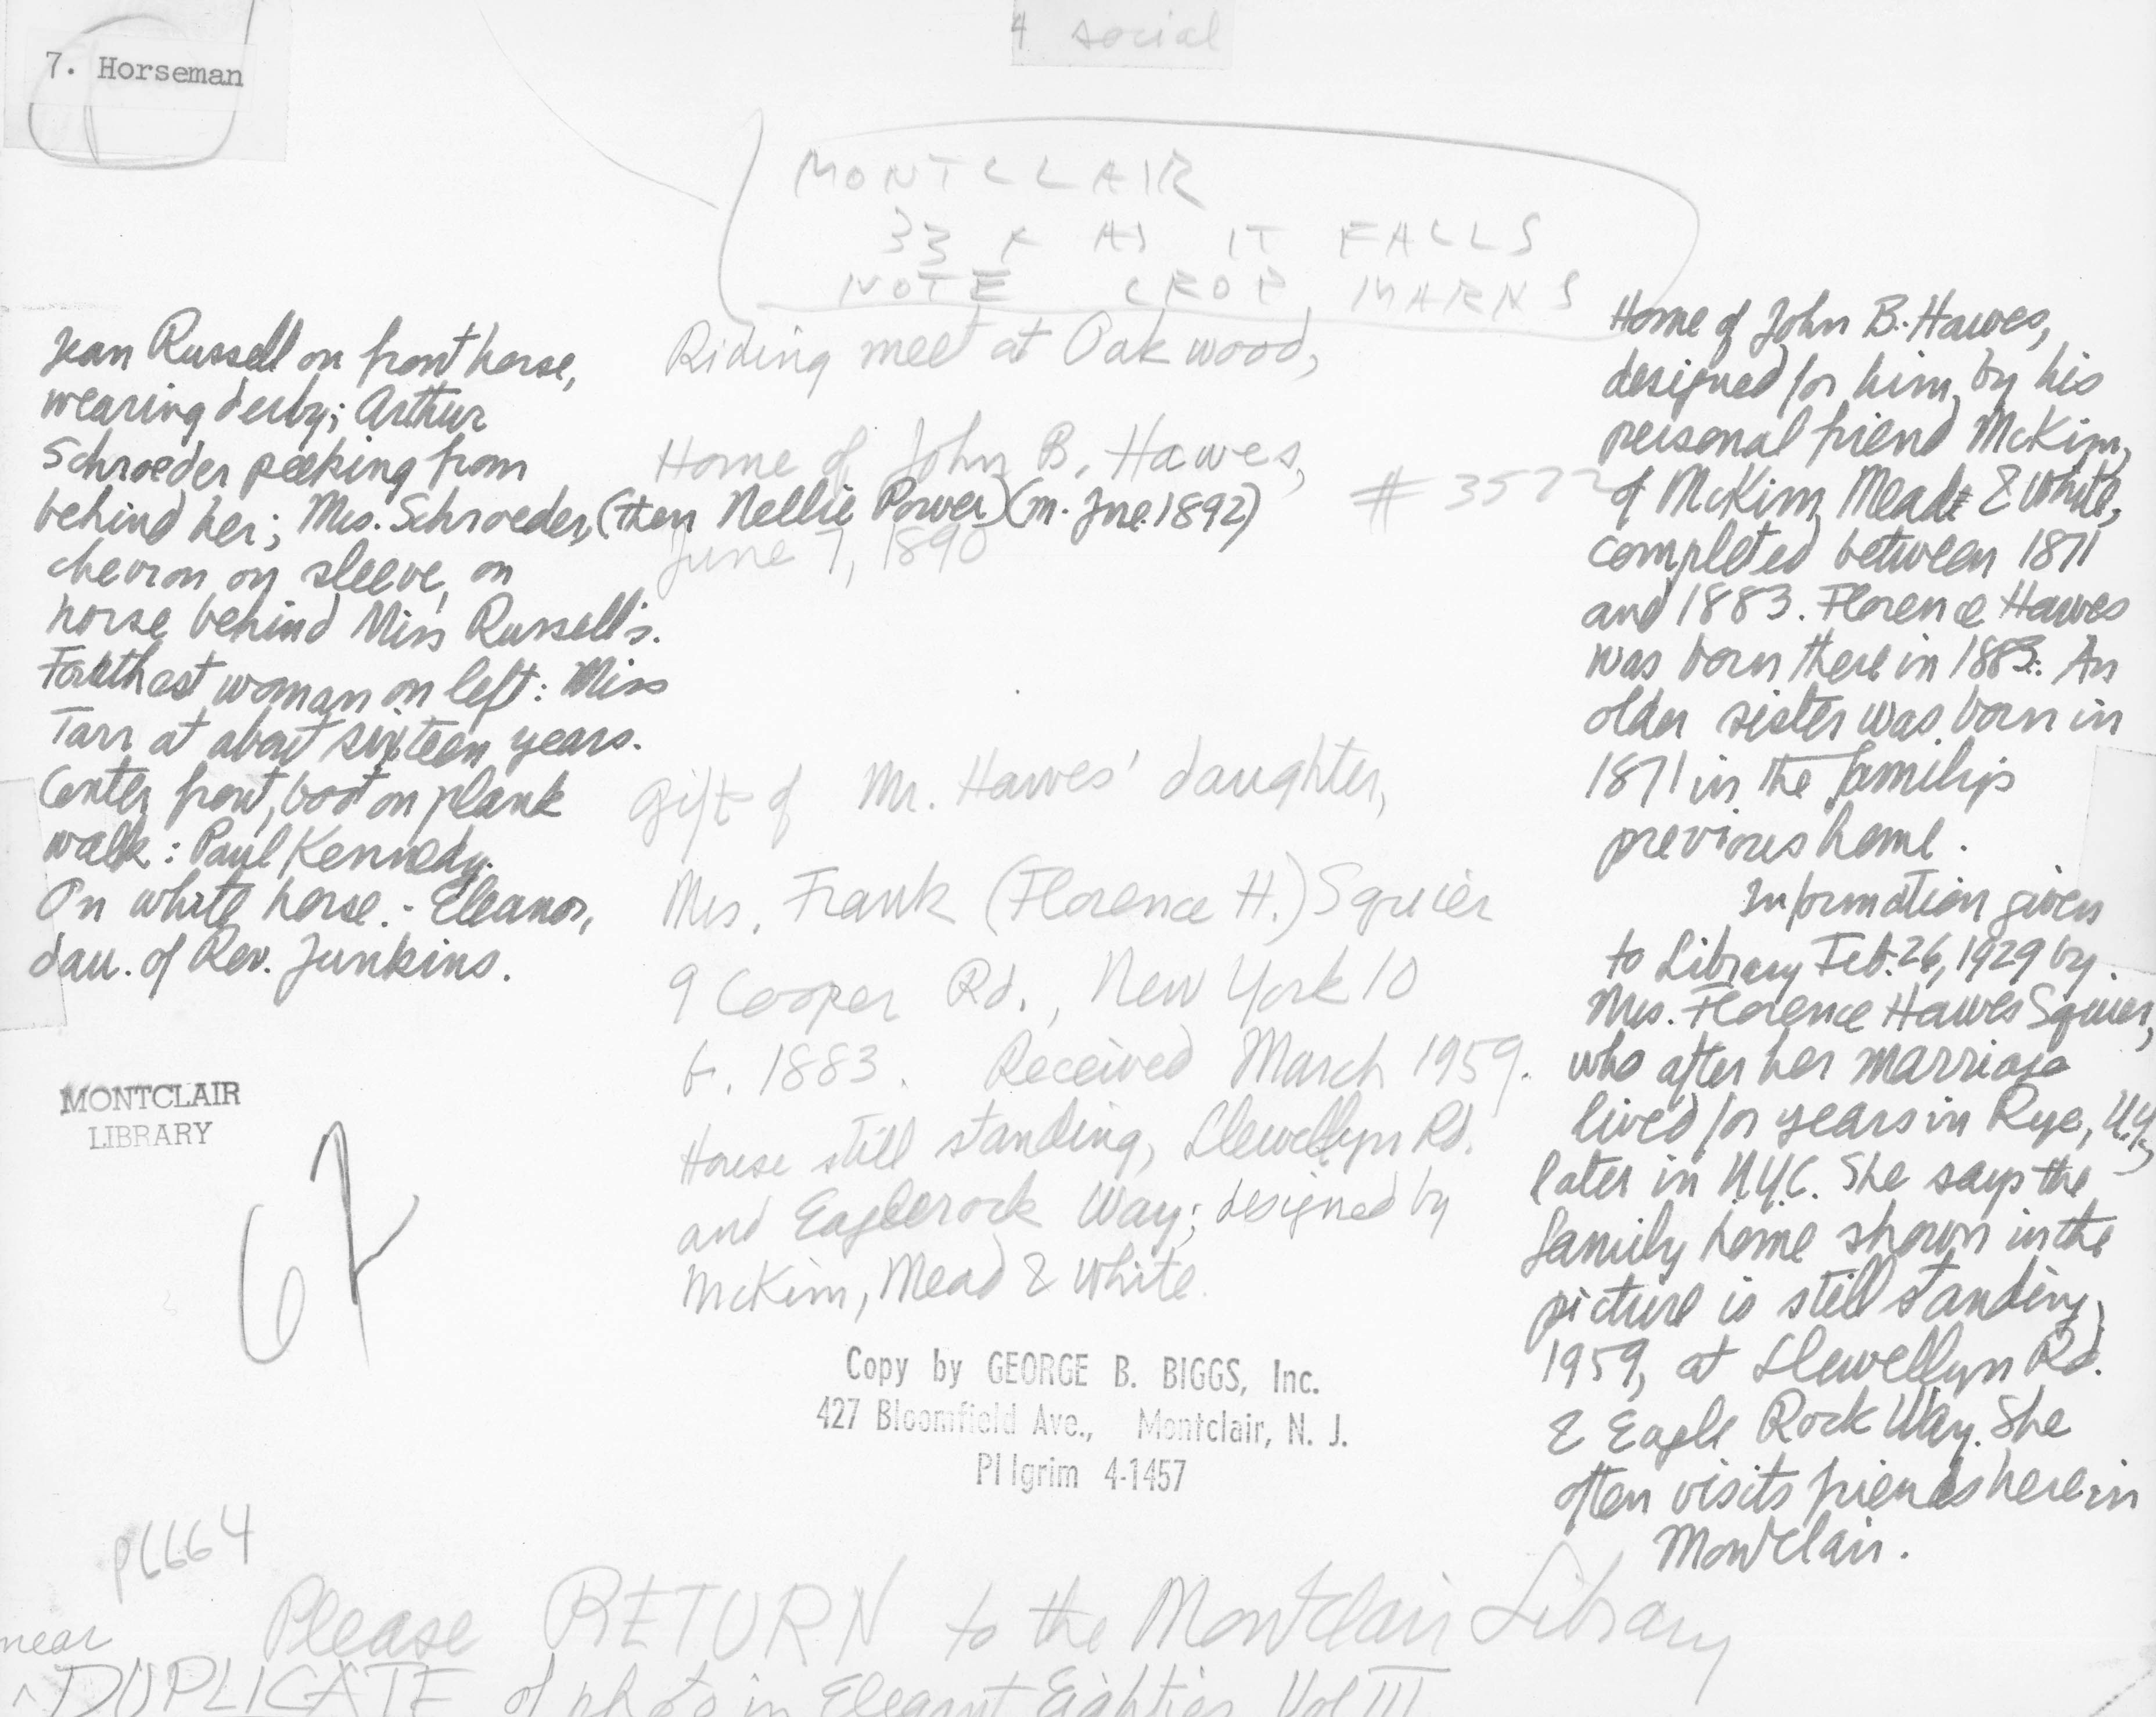 7. Horseman
4 social
MONTCLLAIR
33 % AS IT FALLS
NOTE CROP MARKS
Jean Russell on front horse,
wearing derby; Arthur
Schroeder peeking from
behind her; Mrs. Schroeder, (then Nellie Power) (m. Jne. 1892)
chevron on sleeve, on
horse behind Miss Russell's.
Farthest woman on left: Miss
Tarr at about sixteen years.
Center front, boot on plank
walk: Paul Kennedy.
On white horse - Eleanor,
dau. of Rev. Junkins.
MONTCLAIR
LIBRARY
62
p6664
Riding meet at Oakwood,
Home of John B. Hawes,
# 3572
June 7, 1890
Gift of Mr. Hawes' daughter,
Mrs. Frank (Florence H.) Squier
9 Cooper Rd., New York 10
b. 1883. Received March 1959.
House still standing, Llewellyn Rd.
and Eaglerock Way; designed by
McKim, Mead & White.
Copy by GEORGE B. BIGGS, Inc.
427 Bloomfield Ave., Montclair, N. J.
PIlgrim 4-1457
Home of John B. Hawes,
designed for him by his
personal friend McKim,
of McKim, Mead & White,
completed between 1871
and 1883. Florence Hawes
was born there in 1883. An
older sister was born in
1871 in the family's
previous home.
Information given
to Library Feb. 26, 1929 by
Mrs. Florence Hawes Squier,
who after her marriage
lived for years in Rye, N.Y.,
later in N.Y.C. She says the
family home shown in the
picture is still standing,
1959, at Llewellyn Rd.
& Eagle Rock Way. She
often visits friends here in
Montclair.
Please RETURN to the Montclair Library
near
^ DUPLICATE of photo in Elegant Eighties Vol III